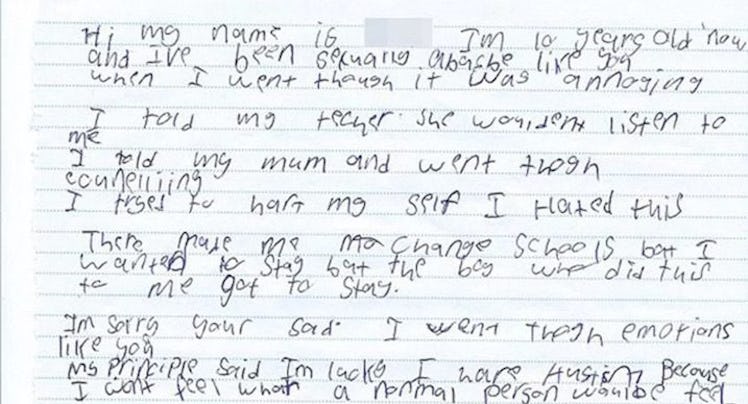 Hi my name is I'm 10 years old now
and I've been sexually abasbe like you
when I went though it was annoging
I told my techer she wouldent listen to
me
I told my mum and went thogh
I tryes to hart my self I Hated this
There made me change schools bat I
wanted to stay bat the boy who did this
to me got to stay.
Im sorry your sad. I went thogh emotions
like you
my principle said Im lucky I have Austism Because
I wont feel what a normal person would be feel